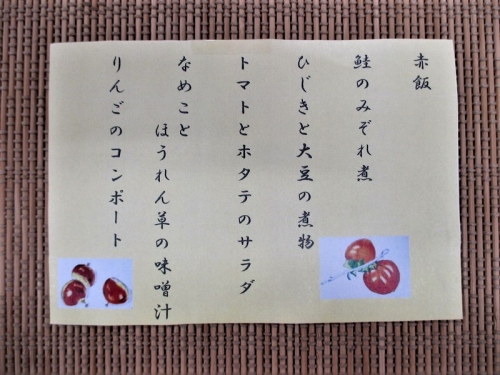 赤飯
鮭のみぞれ煮
ひじきと大豆の煮物
トマトとホタテのサラダ
なめこと
ほうれん草の味噌汁
りんごのコンポート